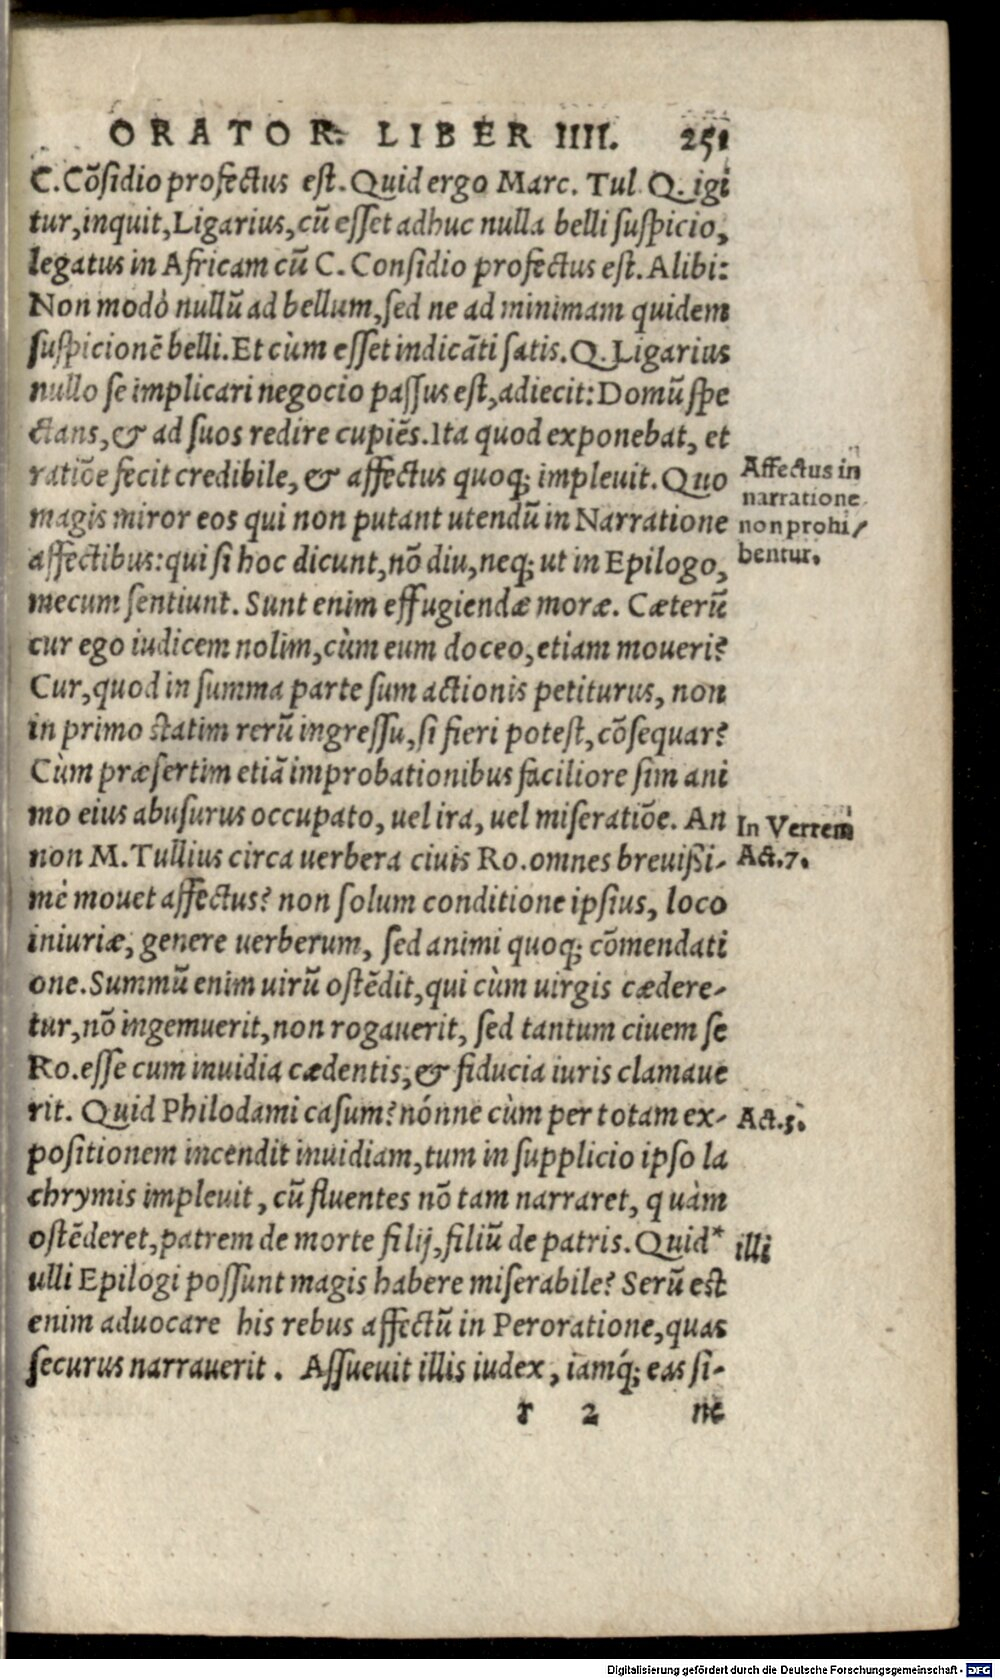 ORATOR. LIBER IIII. 251
C. Cõsidio profectus est. Quid ergo Marc. Tul. Q. igi
tur, inquit, Ligarius, cũ esset adhuc nulla belli suspicio,
legatus in Africam cũ C. Considio profectus est. Alibi:
Non modò nullũ ad bellum, sed ne ad minimam quidem
suspicionẽ belli. Et cùm esset indicãti satis. Q. Ligarius
nullo se implicari negocio passus est, adiecit: Domũ spe
ctans, & ad suos redire cupiẽs. Ita quod exponebat, et
ratiõe fecit credibile, & affectus quoq; implevit. Quo
magis miror eos qui non putant utendũ in Narratione
affectibus: qui si hoc dicunt, nõ diu, neq; ut in Epilogo,
mecum sentiunt. Sunt enim effugiendæ moræ. Cæterũ
cur ego iudicem nolim, cùm eum doceo, etiam moveri?
Cur, quod in summa parte sum actionis petiturus, non
in primo statim rerũ ingressu, si fieri potest, cõsequar?
Cùm præsertim etiã improbationibus faciliore sim ani
mo eius abusurus occupato, vel ira, vel miseratiõe. An
non M. Tullius circa verbera civis Ro. omnes brevißi-
mè movet affectus? non solum conditione ipsius, loco
iniuriæ, genere verberum, sed animi quoq; cõmendati
one. Summũ enim virũ ostẽdit, qui cùm virgis cædere-
tur, nõ ingemuerit, non rogaverit, sed tantum civem se
Ro. esse cum invidia cædentis, & fiducia iuris clamave
rit. Quid Philodami casum? nónne cùm per totam ex-
positionem incendit invidiam, tum in supplicio ipso la
chrymis implevit, cũ fluentes nõ tam narraret, quàm
ostẽderet, patrem de morte filij, filiũ de patris. Quid*
ulli Epilogi possunt magis habere miserabile? Serũ est
enim advocare his rebus affectũ in Peroratione, quas
securus narraverit. Assuevit illis iudex, iamq́; eas si-
r 2 ne
Affectus in
narratione
non prohi-
bentur.
In Verrem
Act. 7.
Act. 5.
illi
Digitalisierung gefördert durch die Deutsche Forschungsgemeinschaft - DFG